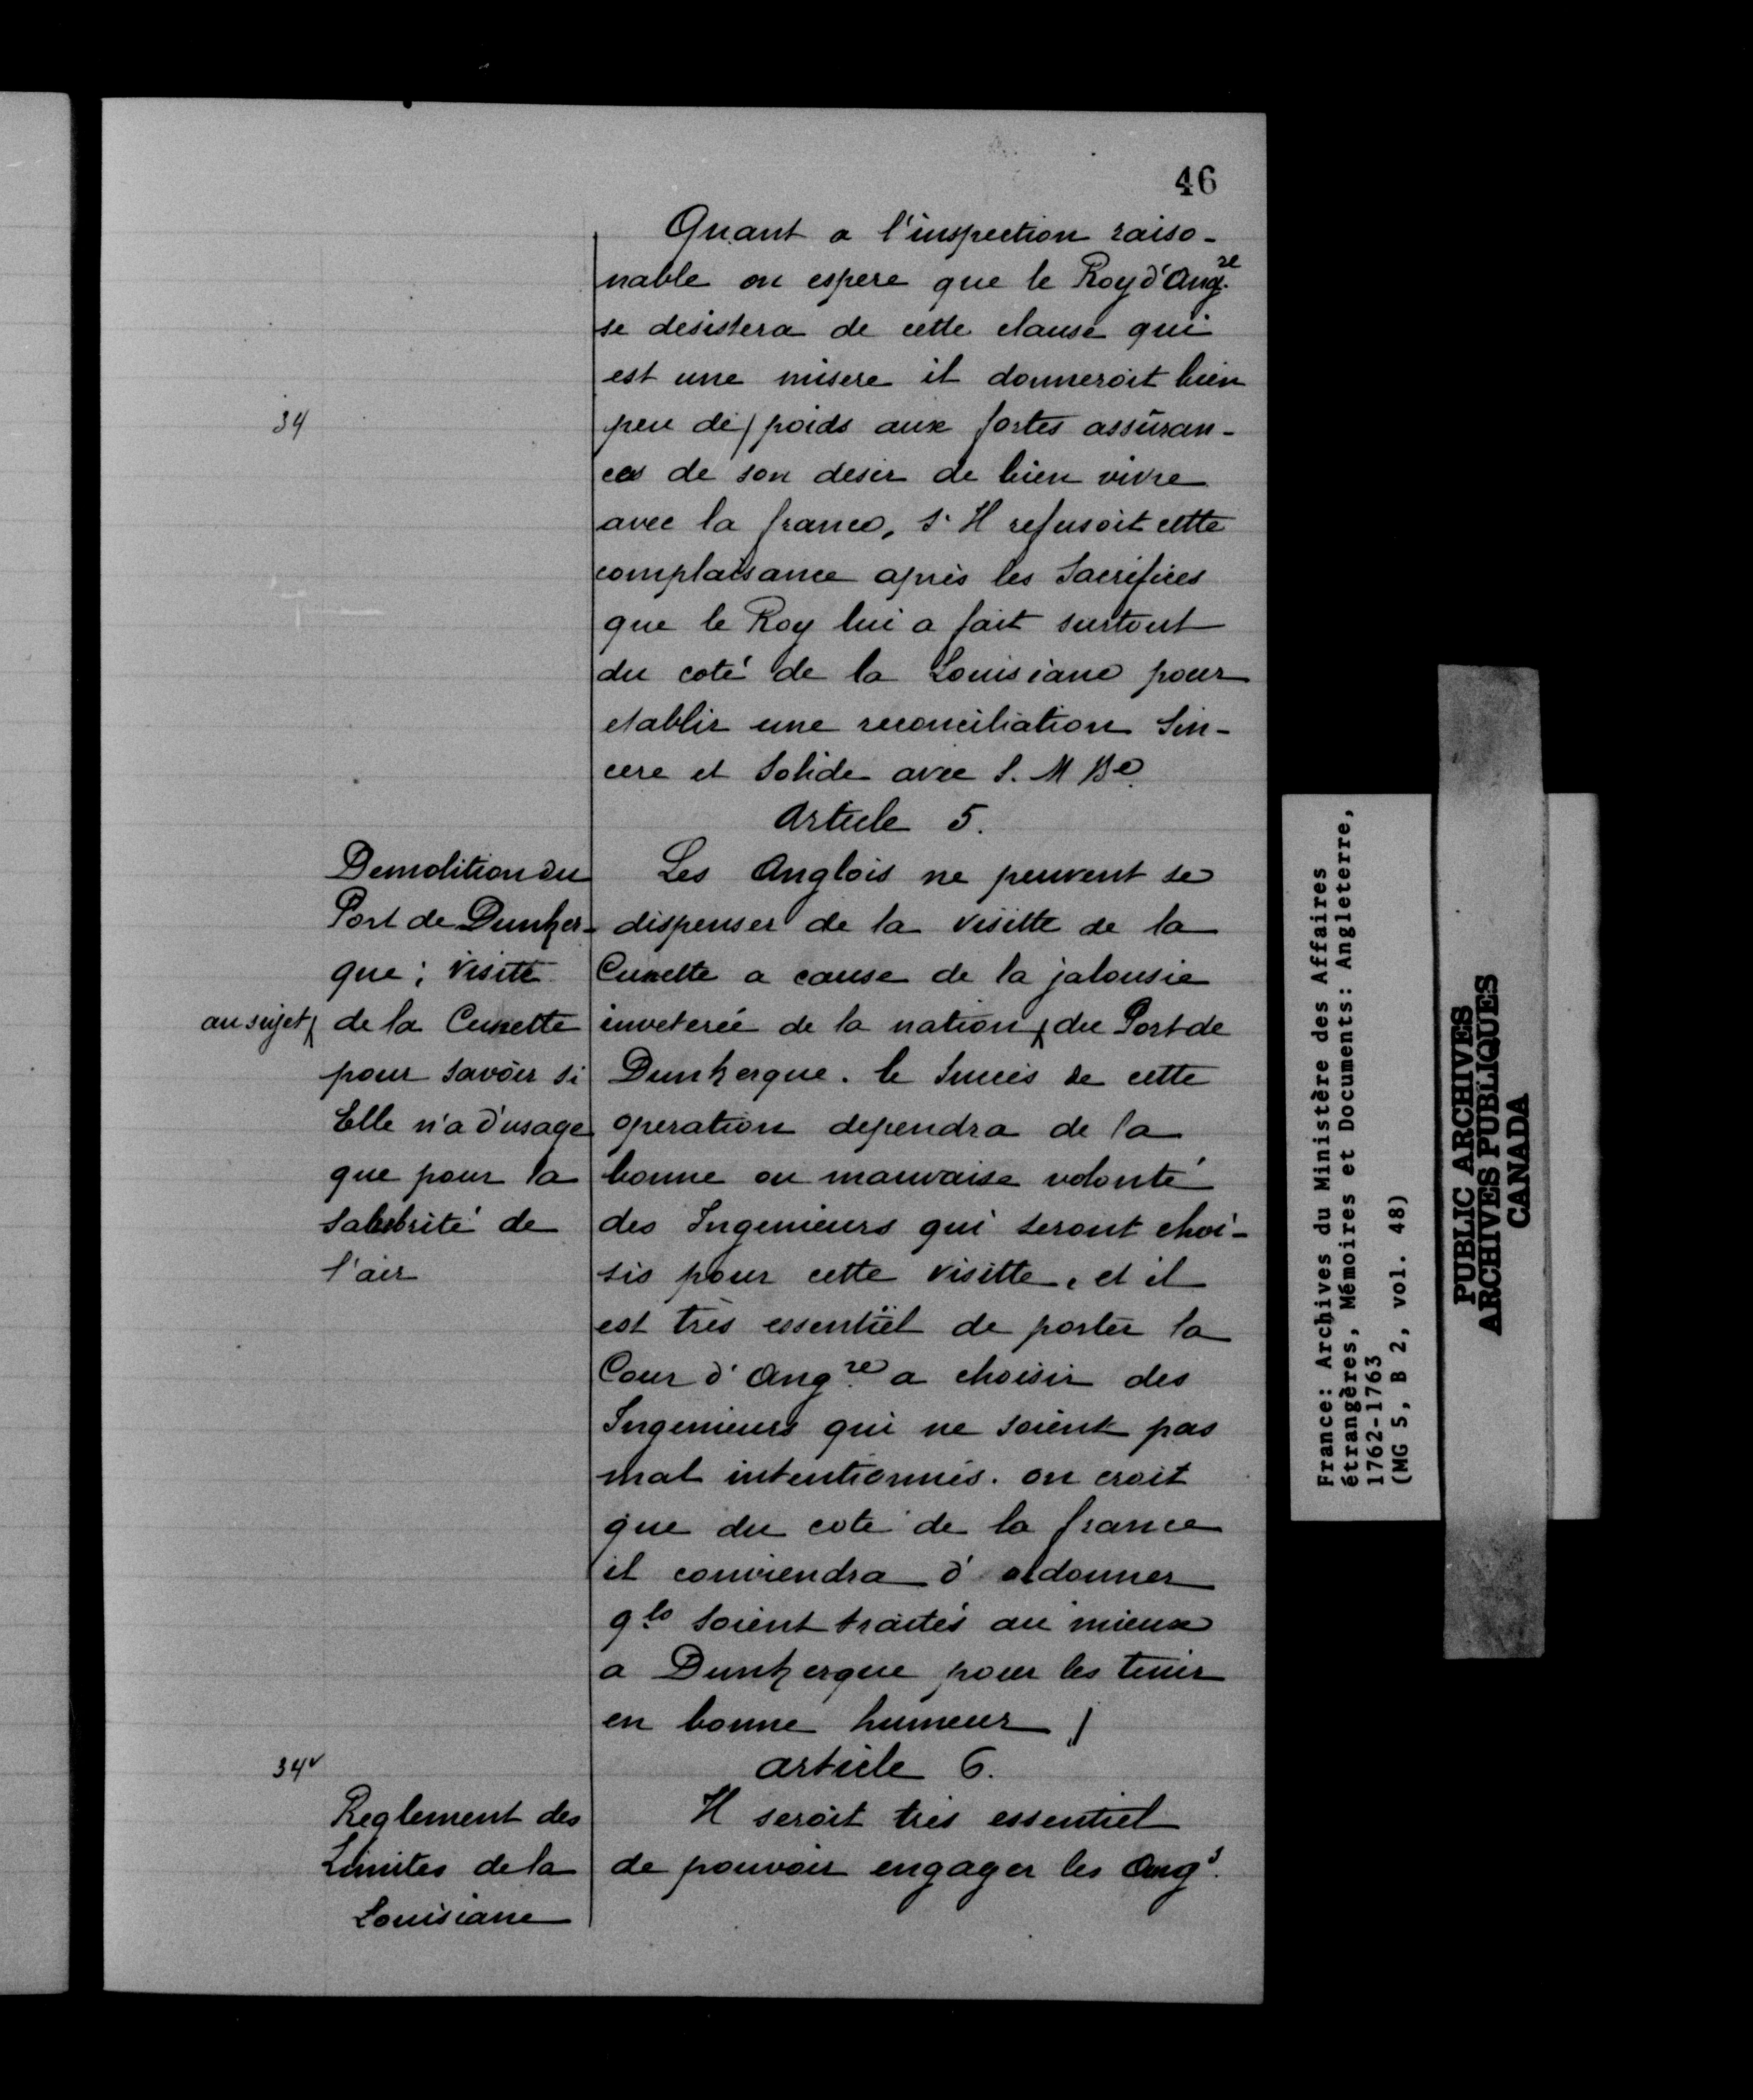 46
Quant a l'inspection raiso-
nable on espere que le Roy d'Ang.re
se desistera de cette clause qui
est une misere il donneroit bien
34
peu de / poids aux fortes assuran-
ces de son desir de bien vivre
avec la france, s'Il refusoit cette
complaisance après les Sacrifices
que le Roy lui a fait surtout
du coté de la Louisiane pour
etablir une reconciliation Sin-
cere et Solide avec S. M Be.
Article 5.
Demolition du
Port de Dunker-
que; Visite
de la Cunette
pour Savoir si
Elle n'a d'usage
que pour la
Salubrité de
l'air
Les Anglois ne peuvent se
dispenser de la Visitte de la
Cunette a cause de la jalousie
au sujet
inveterée de la nation du Port de
Dunkerque. le Succès de cette
operation dependra de la
bonne ou mauvaise volonté
des Ingenieurs qui seront choi-
sis pour cette visitte, et il
est très essentïel de porter la
Cour d'Ang.re a choisir des
Ingenieurs qui ne soient pas
mal intentionnés. on croit
que du coté de la france
il conviendra d'ordonner
q.ls Soient traités au mieux
a Dunkerque pour les tenir
en bonne humeur /
34v
article 6.
Reglement des
Limites de la
Louisiane
Il seroit très essentiel
de pouvoir engager les Ang.s
France: Archives du Ministère des Affaires
étrangères, Mémoires et Documents: Angleterre,
1762-1763
(MG 5, B 2, vol. 48)
PUBLIC ARCHIVES
ARCHIVES PUBLIQUES
CANADA